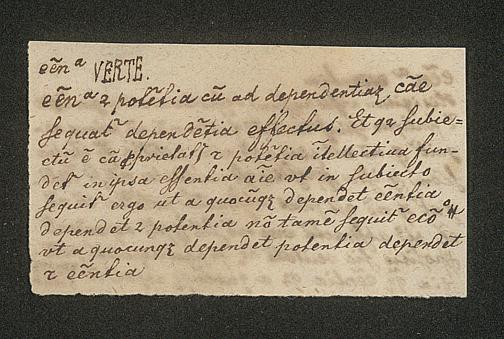 eẽnᵃ VERTE.
eẽnᵃ 2 potẽtia cũ ad dependentiaʒ cãe
sequatʳ dependẽtia effectus. Et qꝛ subie=
ctũ ẽ cã pprietatʒ ꝛ potẽtia ĩtellectiua fun-
detʳ in ipsa essentia aĩe vt in subiecto
sequitʳ ergo ut a quocũqʒ dependet eẽntia
dependet 2 potentia nõ tamẽ sequitʳ ecõ
vt a quocunqʒ dependet potentia dependet
ꝛ eẽntia